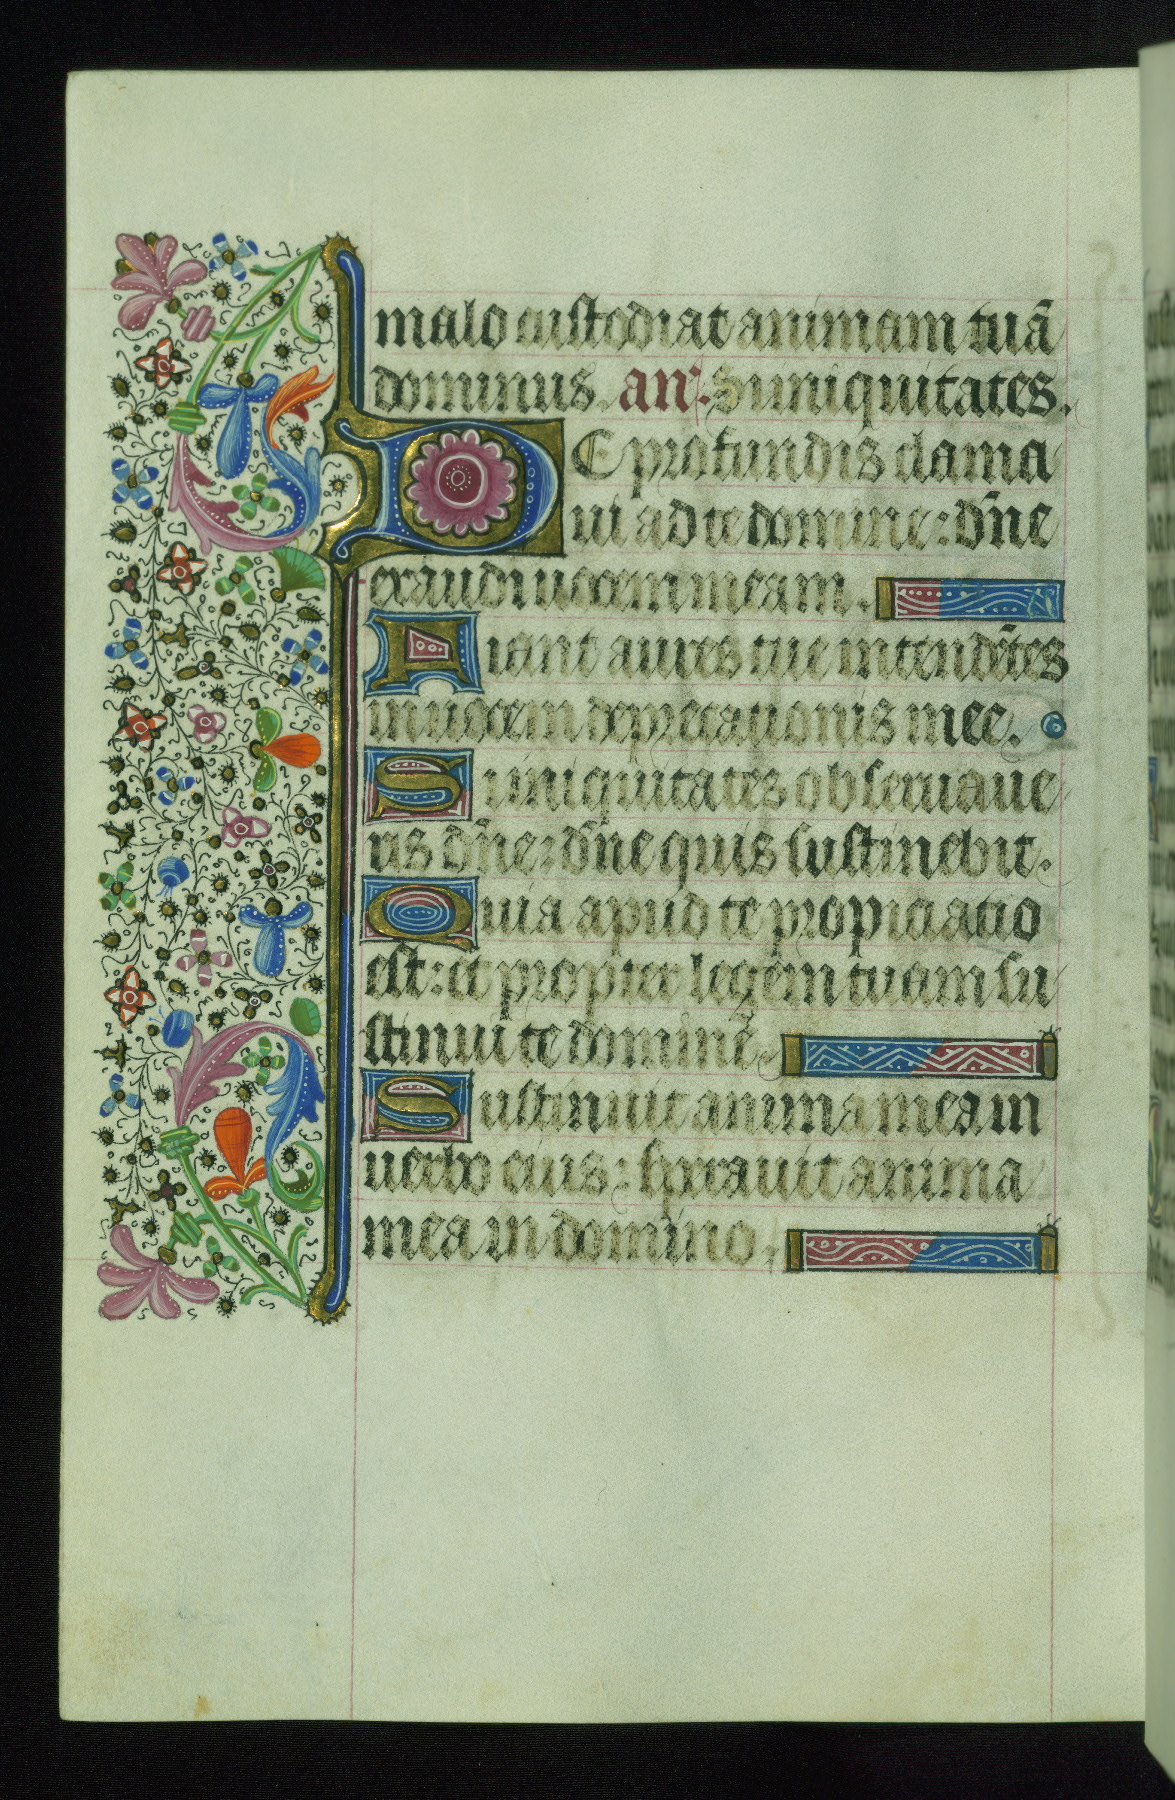 malo custodiat animam tuā
dominus. an̄. Si iniquitates.
DE profundis clama
ui ad te domine: dn̄e
exaudi uocem meam.
Fiant aures tue intendētes
in uocem deprecationis mee.
Si iniquitates obseruaue
ris dn̄e: dn̄e quis sustinebit.
Quia apud te propiciatio
est: et propter legem tuam su
stinui te domine
Sustinuit anima mea in
uerbo eius: sperauit anima
mea in domino.